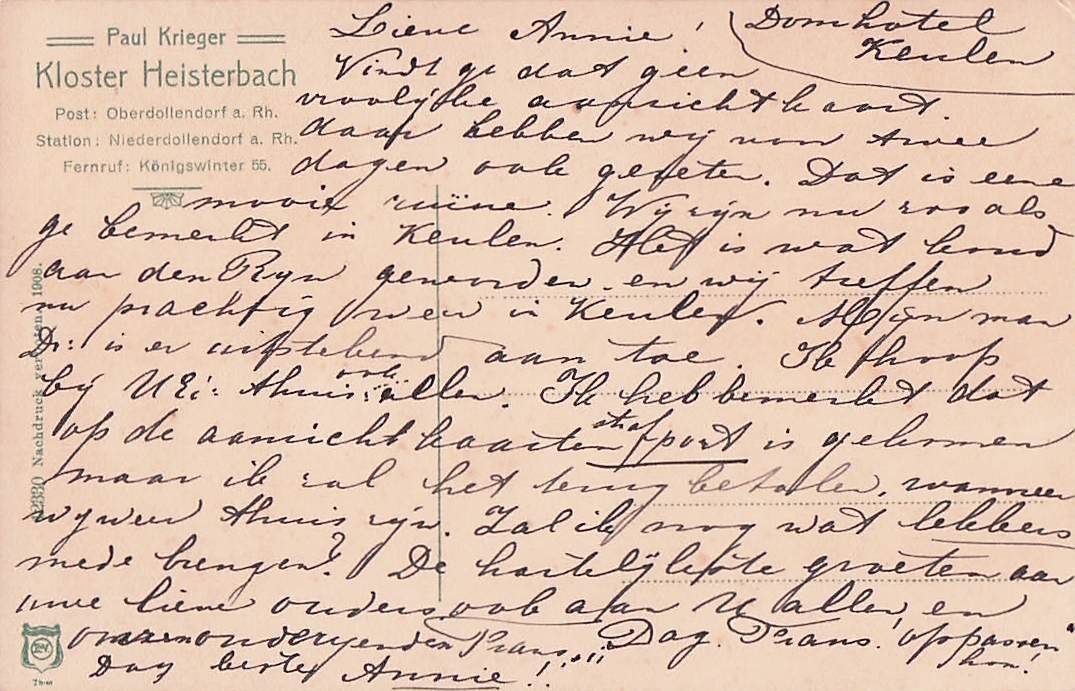 Paul Krieger
Kloster Heisterbach
Post: Oberdollendorf a. Rh.
Station: Niederdollendorf a. Rh.
Fernruf: Königswinter 55.
Domhotel
Keulen
Lieve Annie!
Vindt ge dat geen
vroolijke aanzichtkaart
daar hebben wij voor twee
dagen ook gegeten. Dat is eene
mooie ruïne. Wij zijn nu zooals
ge bemerkt in Keulen. Het is wat koud
aan den Rijn geworden en wij treffen
nu prachtig weer in Keulen. Mijn man
Dr: is er uitstekend aan toe. Ik hoop
bij UEd: thuis ook allen. Ik heb bemerkt dat
op de aanzichtkaarten straf port is gekomen
maar ik zal het terug betalen, wanneer
wij weer thuis zijn. Zal ik nog wat lekkers
mede brengen? De hartelijkste groeten aan
uwe lieve ouders ook aan U allen, en
Dag Frans oppassen
hoor!
Dag beste Annie!!
42320 Nachdruck verboten. 1908.